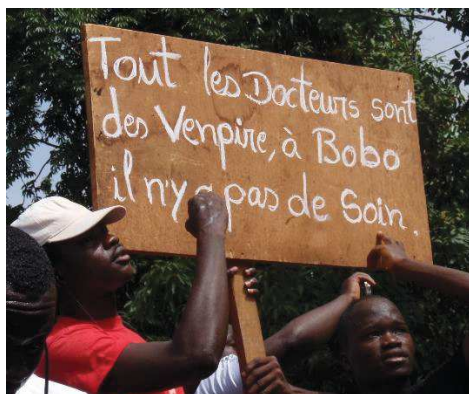 Tout les Docteurs sont
des Venpire, à Bobo
il n'y a pas de Soin.